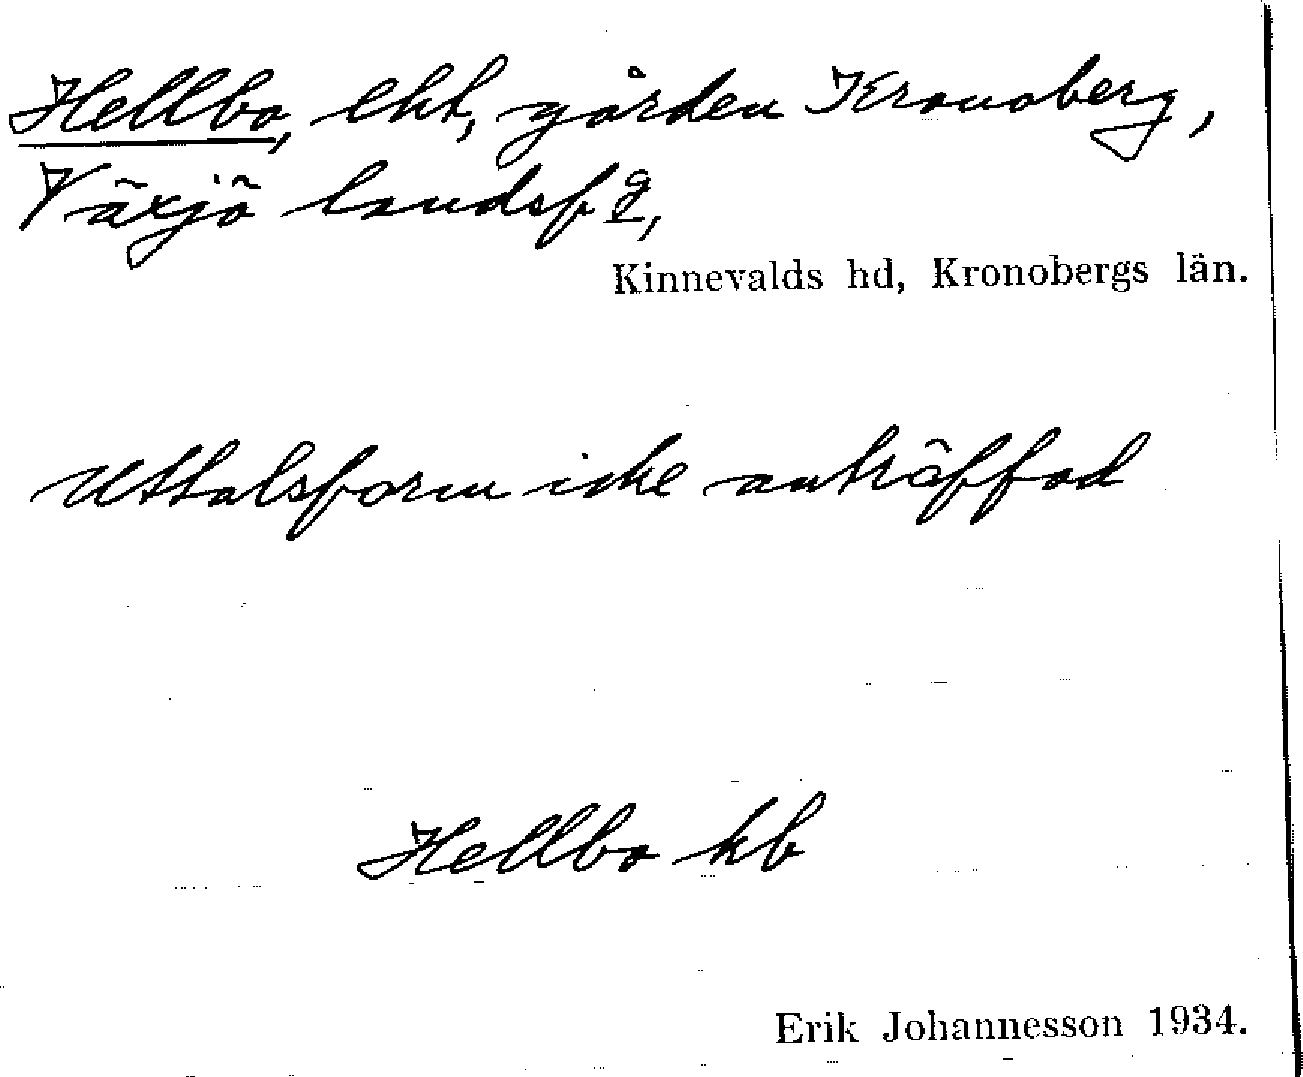 Hellbo, lht, gården Kronoberg,
Växjö landsf g,
Kinnevalds hd, Kronobergs län.
Uttalsform icke anträffad
Hellbo kb
Erik Johannesson 1934.